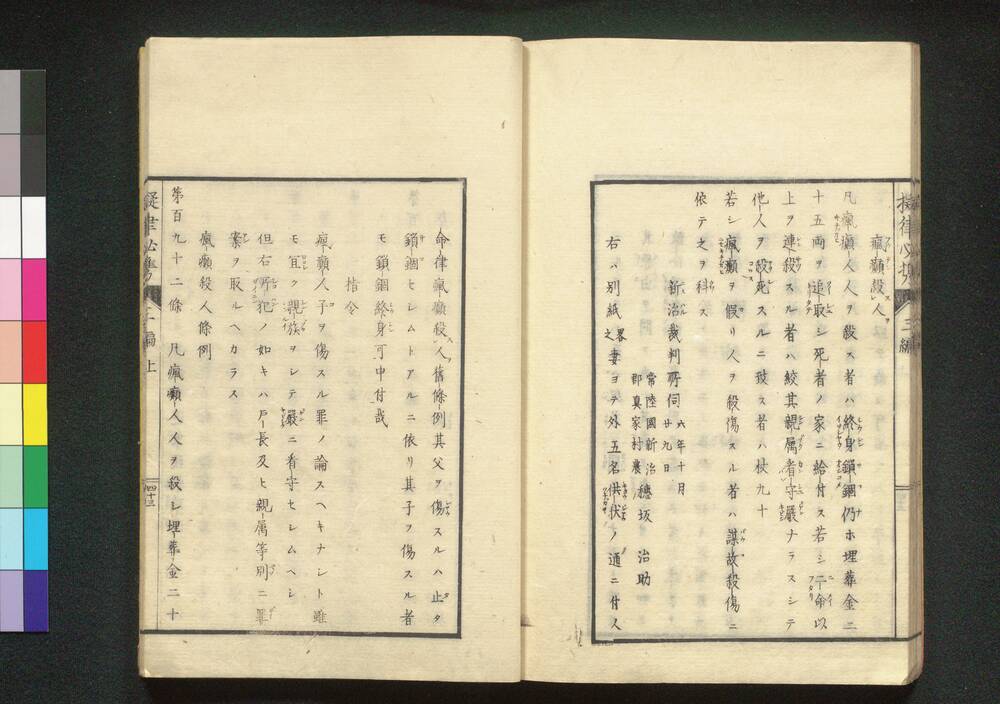 瘋癲殺人
凡瘋癲人人ヲ殺ス者ハ終身鎖錮仍ホ埋葬金二
十五両ヲ追取シ死者ノ家ニ給付ス若シ二命以
上ヲ連殺スル者ハ絞其親属看守嚴ナラスシテ
他人ヲ殺死スルニ致ス者ハ杖九十
若シ瘋癲ヲ假リ人ヲ殺傷スル者ハ謀故殺傷ニ
依テ之ヲ科ス
新治裁判所伺 六年十月廿九日
常陸國新治郡真家村農 穂坂 治助
右ハ別紙略之妻ヨテ外五名供伏ノ通ニ付人
命律瘋癲殺人舊條例其父ヲ傷スルハ止タ
鎖錮セシムトアルニ依リ其子ヲ傷スル者
モ鎖錮終身可申付哉
指令
瘋癲人子ヲ傷スル罪ノ論スヘキナシト雖
モ宜ク親族ヲシテ嚴ニ看守セシムヘシ
但右所犯ノ如キハ戸長及ヒ親属等別ニ罪
案ヲ取ルヘカラス
瘋癲殺人條例
第百九十二條 凡瘋癲人人ヲ殺シ埋葬金二十
三編
二編 上
四十三